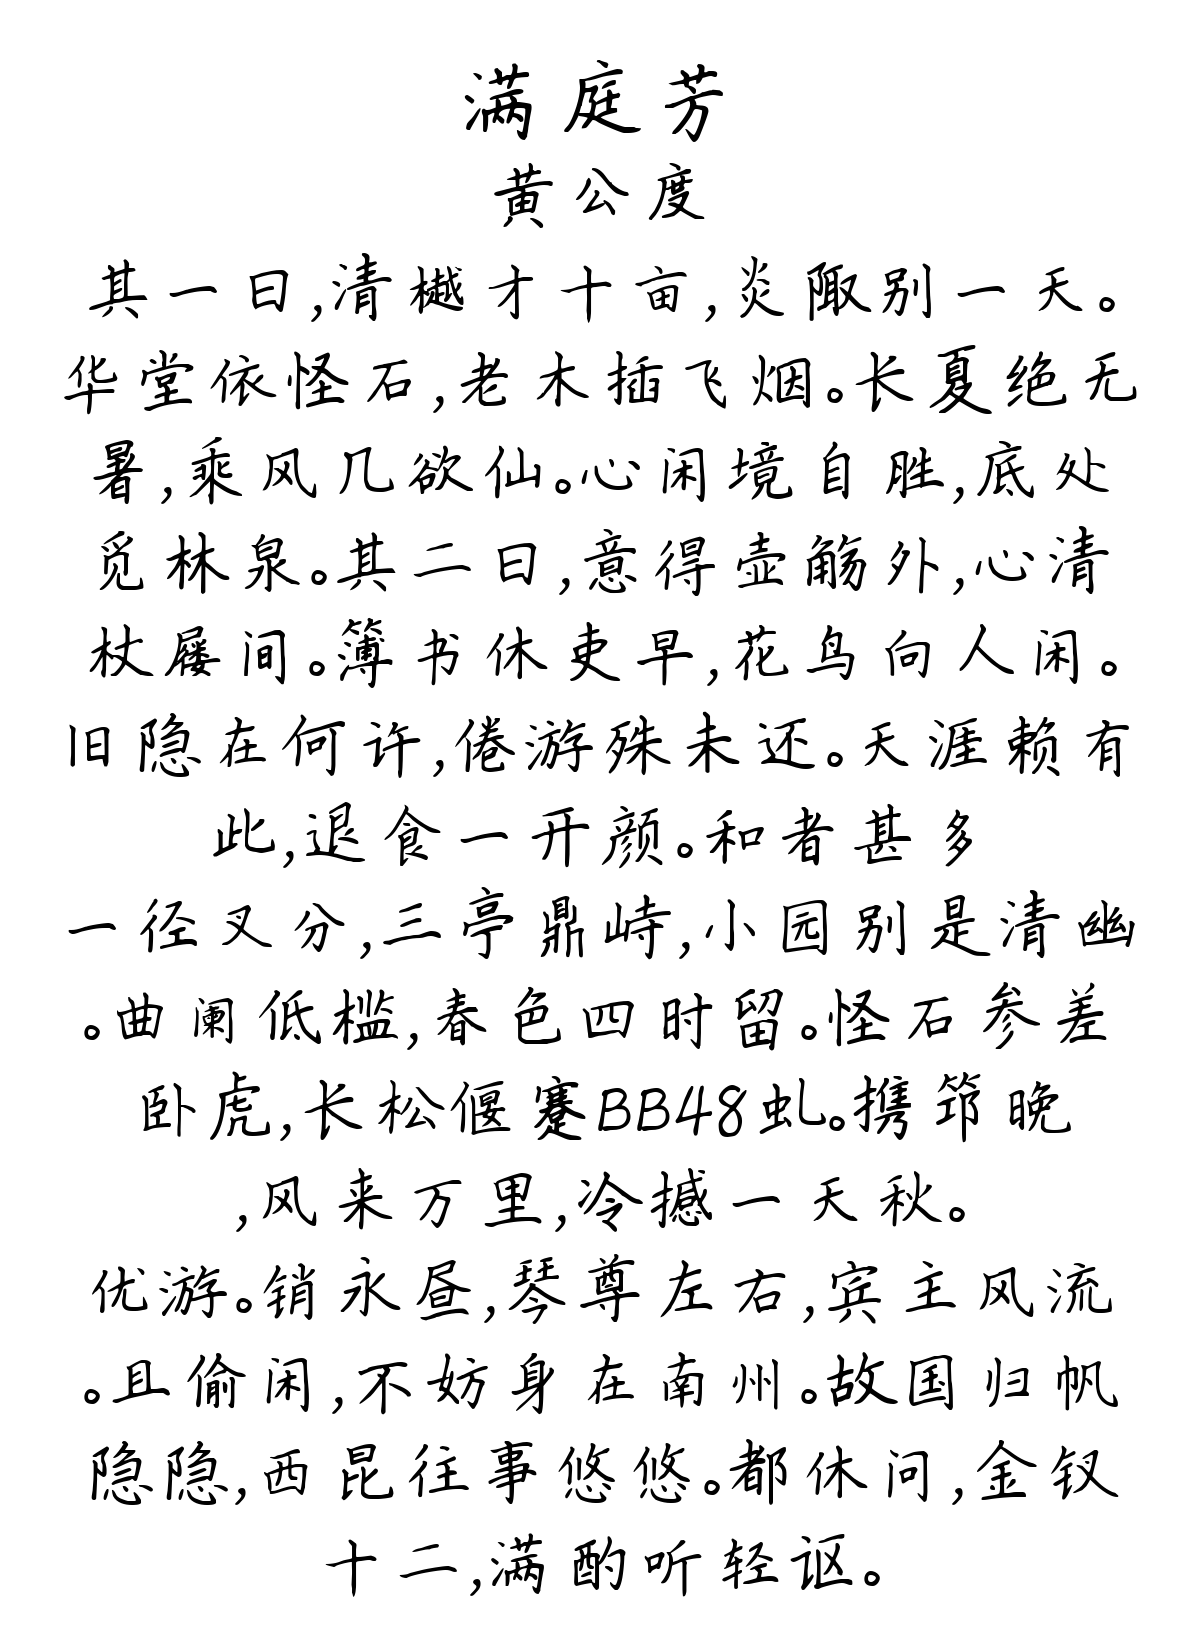 满庭芳
黄公度
其一曰,清樾才十亩,炎陬别一天。
华堂依怪石,老木插飞烟。长夏绝无
暑,乘风几欲仙。心闲境自胜,底处
觅林泉。其二曰,意得壶觞外,心清
杖屦间。簿书休吏早,花鸟向人闲。
旧隐在何许,倦游殊未还。天涯赖有
此,退食一开颜。和者甚多
一径叉分,三亭鼎峙,小园别是清幽
。曲阑低槛,春色四时留。怪石参差
卧虎,长松偃蹇BB48虬。携筇晚
,风来万里,冷撼一天秋。
优游。销永昼,琴尊左右,宾主风流
。且偷闲,不妨身在南州。故国归帆
隐隐,西昆往事悠悠。都休问,金钗
十二,满酌听轻讴。